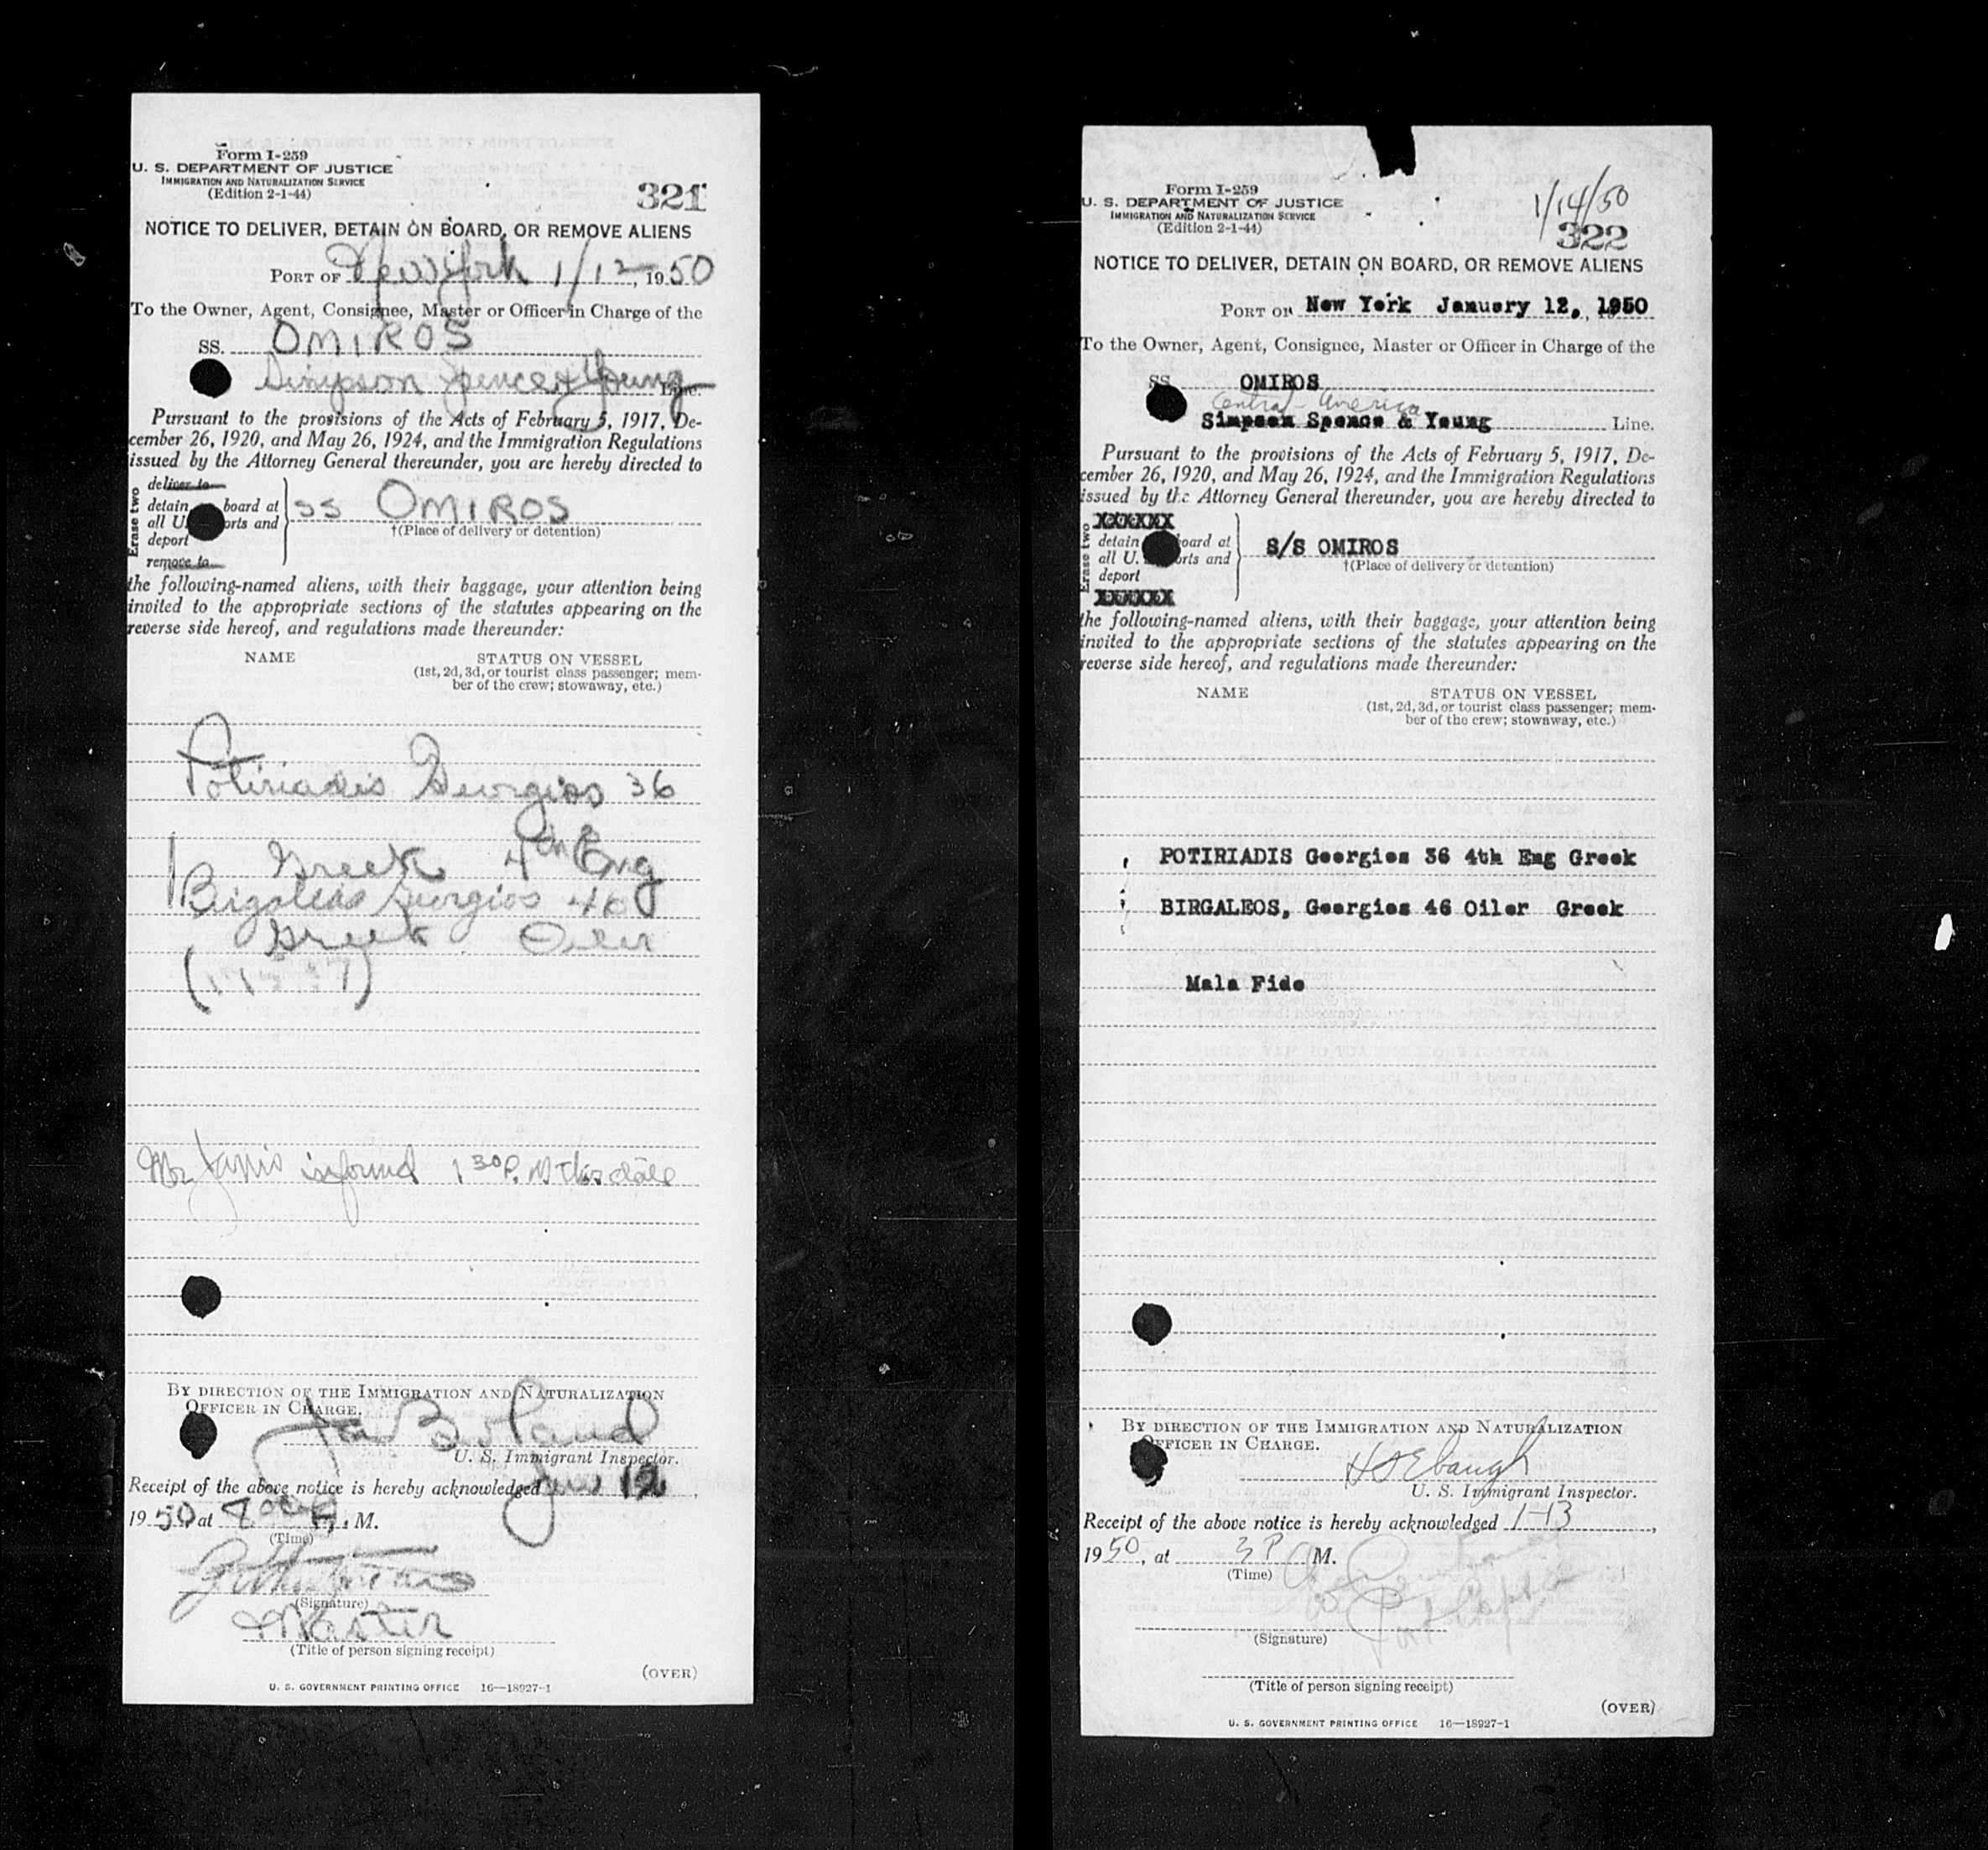 Form I-259
U. S. DEPARTMENT OF JUSTICE
IMMIGRATION AND NATURALIZATION SERVICE
(Edition 2-1-44)
321
NOTICE TO DELIVER, DETAIN ON BOARD, OR REMOVE ALIENS
PORT OF New York 1/12, 1950
To the Owner, Agent, Consignee, Master or Officer in Charge of the
SS. OMIROS
Simpson Spence & Young Line.
Pursuant to the provisions of the Acts of February 5, 1917, De-
cember 26, 1920, and May 26, 1924, and the Immigration Regulations
issued by the Attorney General thereunder, you are hereby directed to
Erase two
deliver to
detain board at
all U. orts and
deport
remove to
SS OMIROS
†(Place of delivery or detention)
the following-named aliens, with their baggage, your attention being
invited to the appropriate sections of the statutes appearing on the
reverse side hereof, and regulations made thereunder:
NAME STATUS ON VESSEL
(1st, 2d, 3d, or tourist class passenger; mem-
ber of the crew; stowaway, etc.)
Potiriadis Georgios 36
Greek 4th Eng
Birgaleos Georgios 46
Greek Oiler
Mr informed 1 30 P.M this date
BY DIRECTION OF THE IMMIGRATION AND NATURALIZATION
OFFICER IN CHARGE.
U. S. Immigrant Inspector.
Receipt of the above notice is hereby acknowledged Jan 12,
1950, at M.
(Time)
(Signature)
Master
(Title of person signing receipt)
(OVER)
U. S. GOVERNMENT PRINTING OFFICE 16—18927-1
Form I-259
U. S. DEPARTMENT OF JUSTICE
IMMIGRATION AND NATURALIZATION SERVICE
(Edition 2-1-44)
1/14/50
322
NOTICE TO DELIVER, DETAIN ON BOARD, OR REMOVE ALIENS
PORT OF New York January 12, 1950
To the Owner, Agent, Consignee, Master or Officer in Charge of the
SS OMIROS
Central America
Simpson Spence & Young Line.
Pursuant to the provisions of the Acts of February 5, 1917, De-
cember 26, 1920, and May 26, 1924, and the Immigration Regulations
issued by the Attorney General thereunder, you are hereby directed to
Erase two
XXXXXX
detain board at
all U. orts and
deport
XXXXXX
S/S OMIROS
†(Place of delivery or detention)
the following-named aliens, with their baggage, your attention being
invited to the appropriate sections of the statutes appearing on the
reverse side hereof, and regulations made thereunder:
NAME STATUS ON VESSEL
(1st, 2d, 3d, or tourist class passenger; mem-
ber of the crew; stowaway, etc.)
POTIRIADIS Georgios 36 4th Eng Greek
BIRGALEOS, Georgios 46 Oiler Greek
Mala Fide
BY DIRECTION OF THE IMMIGRATION AND NATURALIZATION
OFFICER IN CHARGE.
H S Ebaugh
U. S. Immigrant Inspector.
Receipt of the above notice is hereby acknowledged 1-13,
1950, at 3 P M.
(Time)
(Signature)
(Title of person signing receipt)
(OVER)
U. S. GOVERNMENT PRINTING OFFICE 16—18927-1